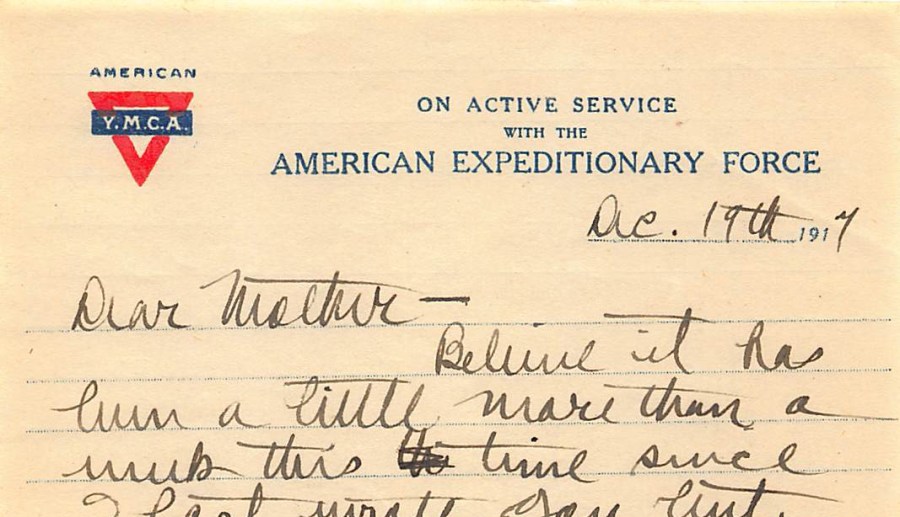 AMERICAN
Y.M.C.A.
ON ACTIVE SERVICE
WITH THE
AMERICAN EXPEDITIONARY FORCE
Dec. 19th 1917
Dear Mother —
Believe it has
been a little more than a
week this time since
I last wrote you but